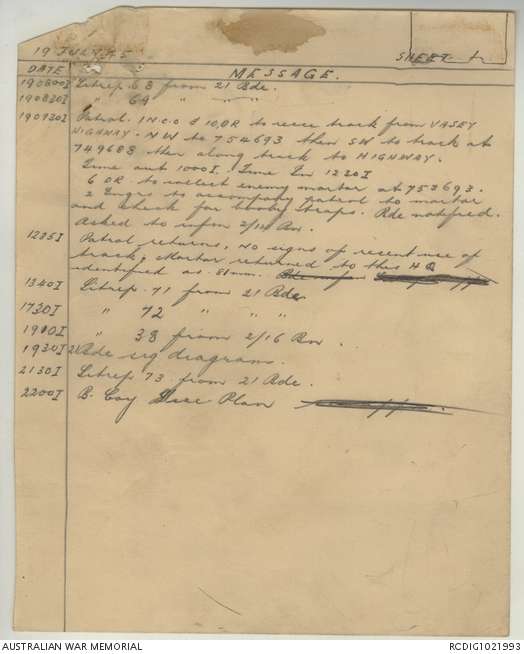 19 JULY 45 SHEET 1.
DATE MESSAGE.
190800I Sitrep 68 from 21 Bde.
190830I " 69 " " "
190930I Patrol. 1 N.C.O & 10 OR to recce track from VASEY
HIGHWAY. NW to 754693 then SW to track at
749688 then along track to HIGHWAY.
Time out 1000I. Time In 1220I
6 OR to collect enemy mortar at 753693.
2 Engrs to accompany patrol to mortar
and check for booby traps. Bde notified.
Asked to inform 2/14 Bn.
1235I Patrol returns, No signs of recent use of
track, Mortar returned to this HQ
identified as 81mm.
1340I Sitrep. 71 from 21 Bde
1730I " 72 " " "
1900I " 38 from 2/16 Bn.
1930I 21 Bde sig diagram.
2130I Sitrep 73 from 21 Bde.
2200I B. Coy Plan
AUSTRALIAN WAR MEMORIAL RCDIG1021993